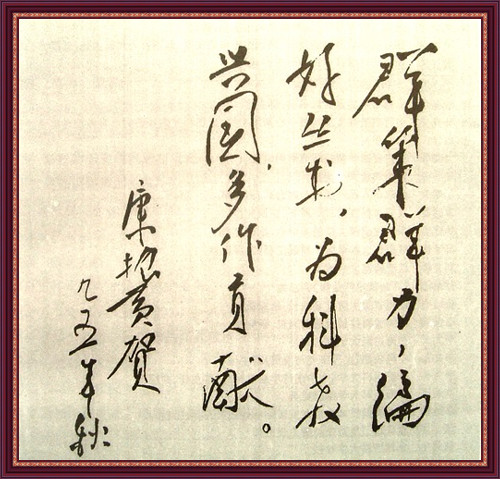 群策群力，编
好丛书，为科教
兴国，多作贡献。
康振黄贺
九五年秋